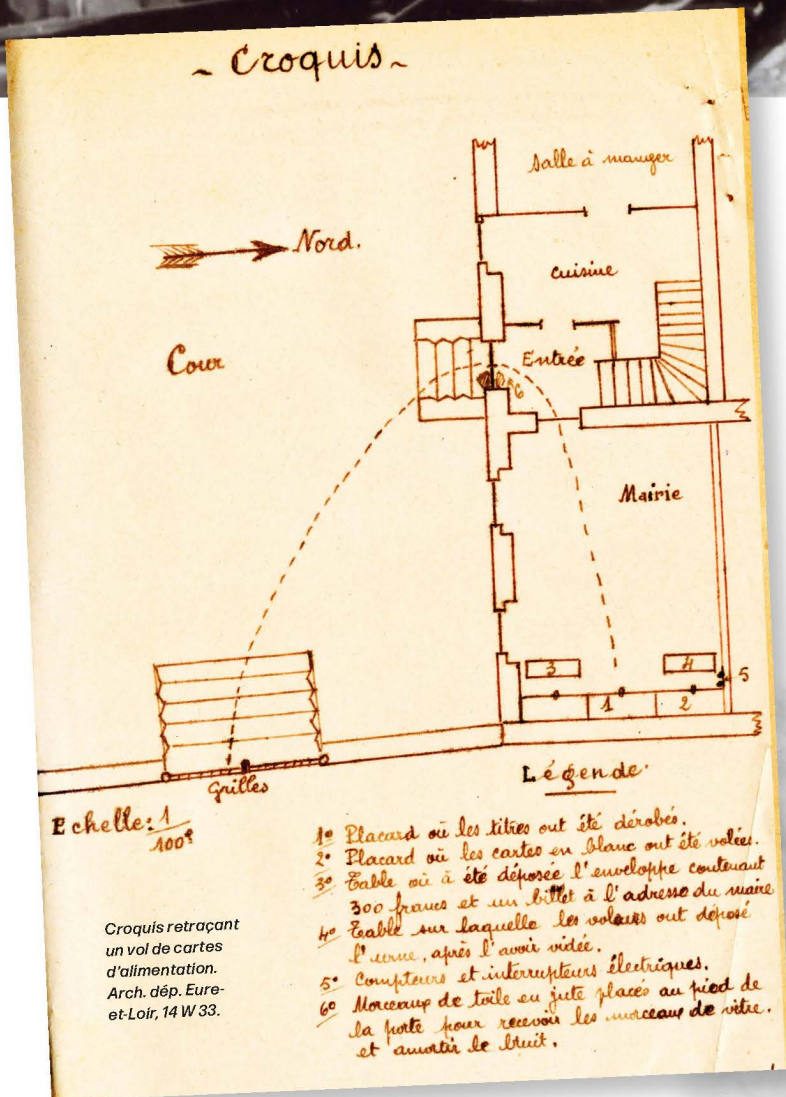 ~ Croquis ~
salle à manger
Nord.
cuisine
Cour
Entrée
6
Mairie
3
4
5
1
2
Grilles
Echelle: 1/100e
Légende.
1º Placard où les titres ont été dérobés.
2º Placard où les cartes en blanc ont été volées.
3º Table où à été déposée l'enveloppe contenant
300 francs et un billet à l'adresse du maire
4º Table sur laquelle les voleurs ont déposé
l'urne, après l'avoir vidée.
5º Compteurs et interrupteurs électriques.
6º Morceaux de toile en jute placés au pied de
la porte pour recevoir les morceaux de vitre.
et amortir le bruit.
Croquis retraçant
un vol de cartes
d'alimentation.
Arch. dép. Eure-
et-Loir, 14 W 33.